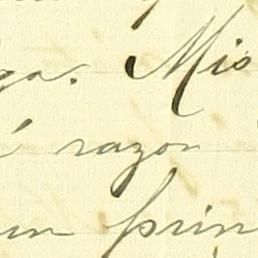 ga. Mis
razon
un prin